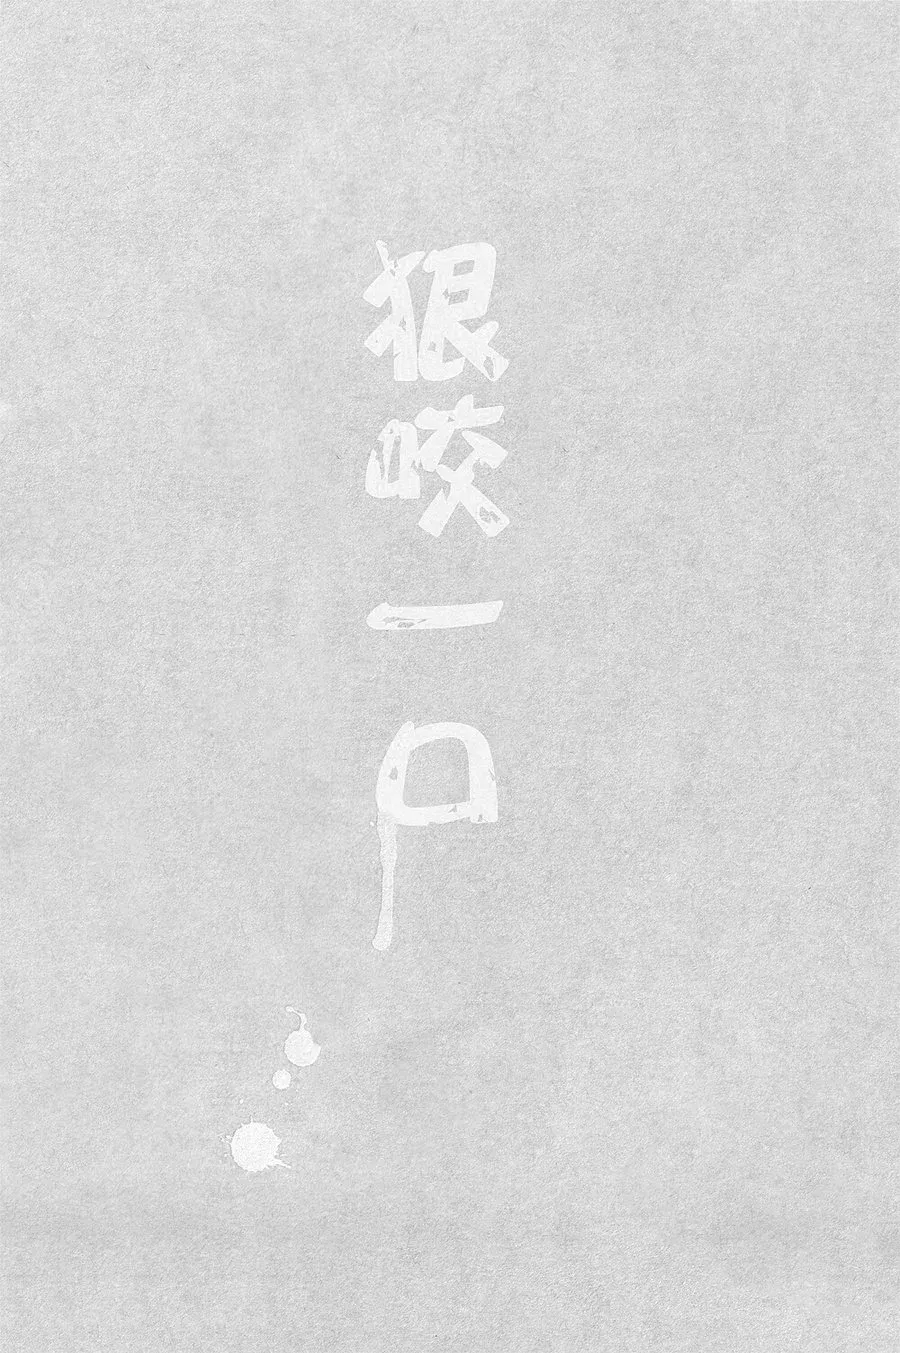 狠咬一口